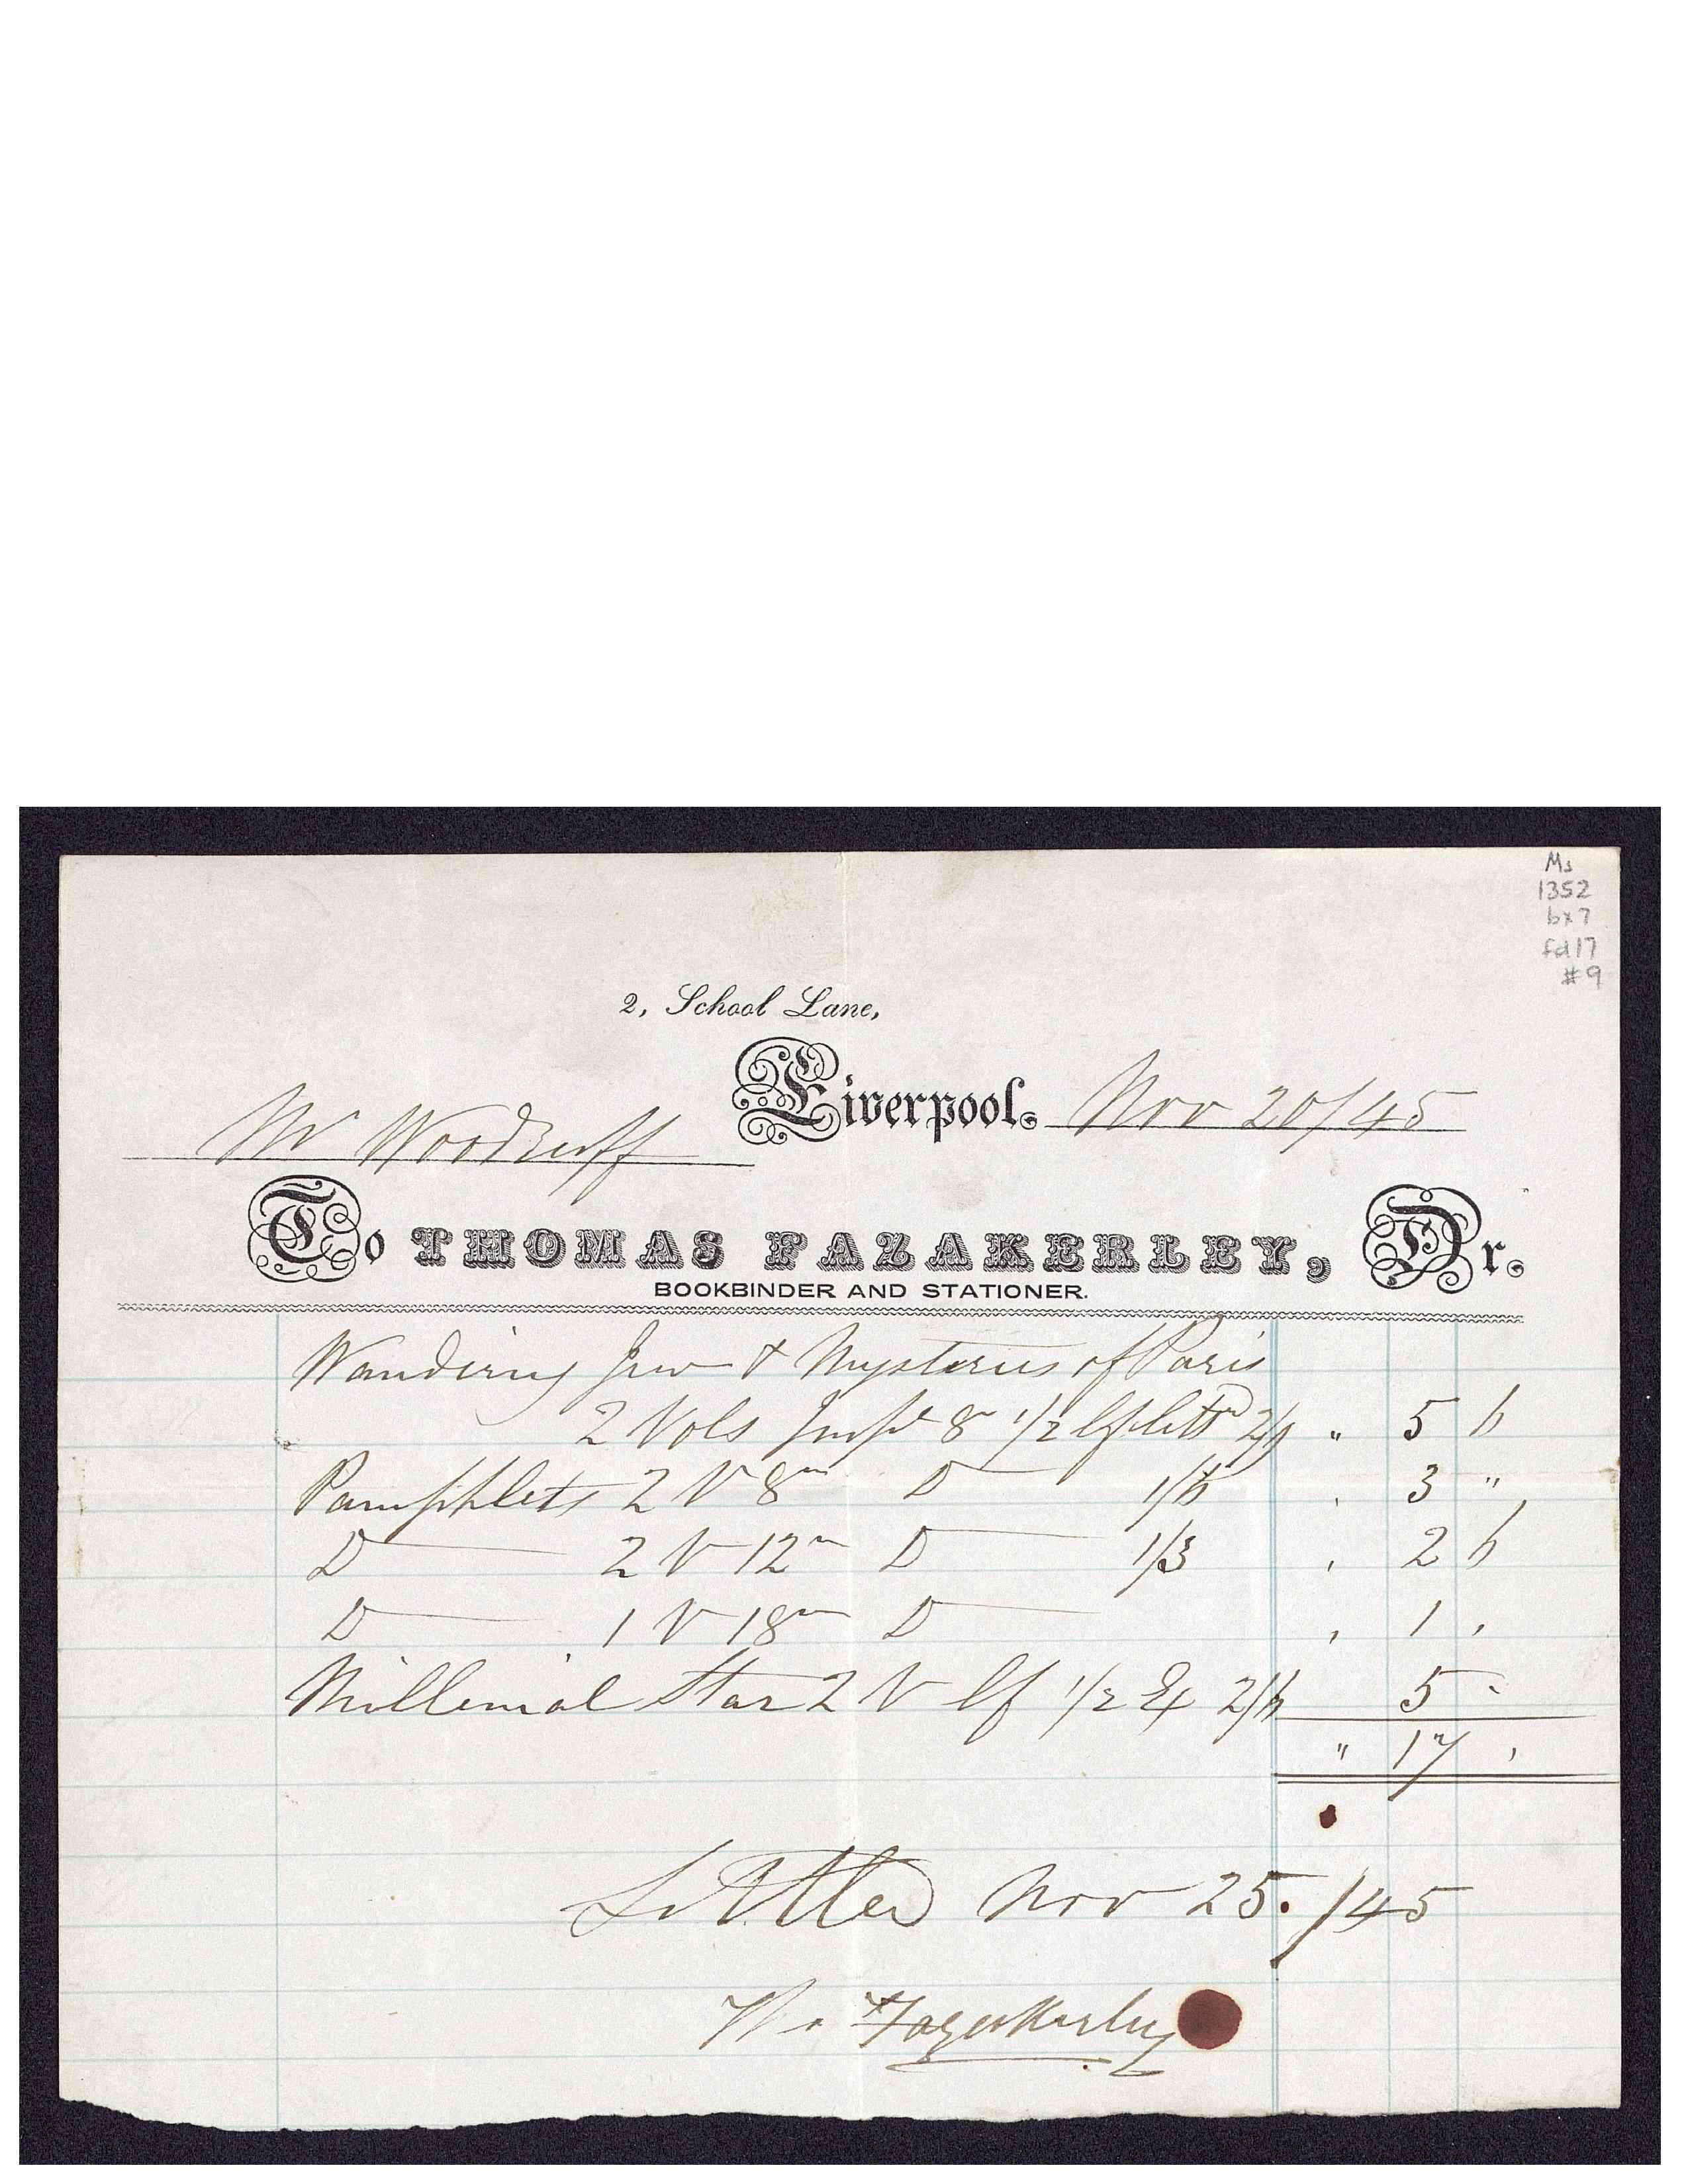 Ms
1352
bx 7
fd 17
#9
2, School Lane,
Liverpool. Nov 20/45
Mr Woodruff
To THOMAS FAZAKERLEY, Dr.
BOOKBINDER AND STATIONER.
Wandering Jew & Mysteries of Paris
2 Vols Impl 8 1/2 lf lettd " 5 6
Pamphlets 2 V 8vo D 1/6 . 3 "
D 2 V 12m D 1/3 , 2 6
D 1 V 18m D , 1 ,
Millenial Star 2 V lf 1/2 2/6 5 -
" 17 ,
Settled Nov 25. /45
Fazakerley